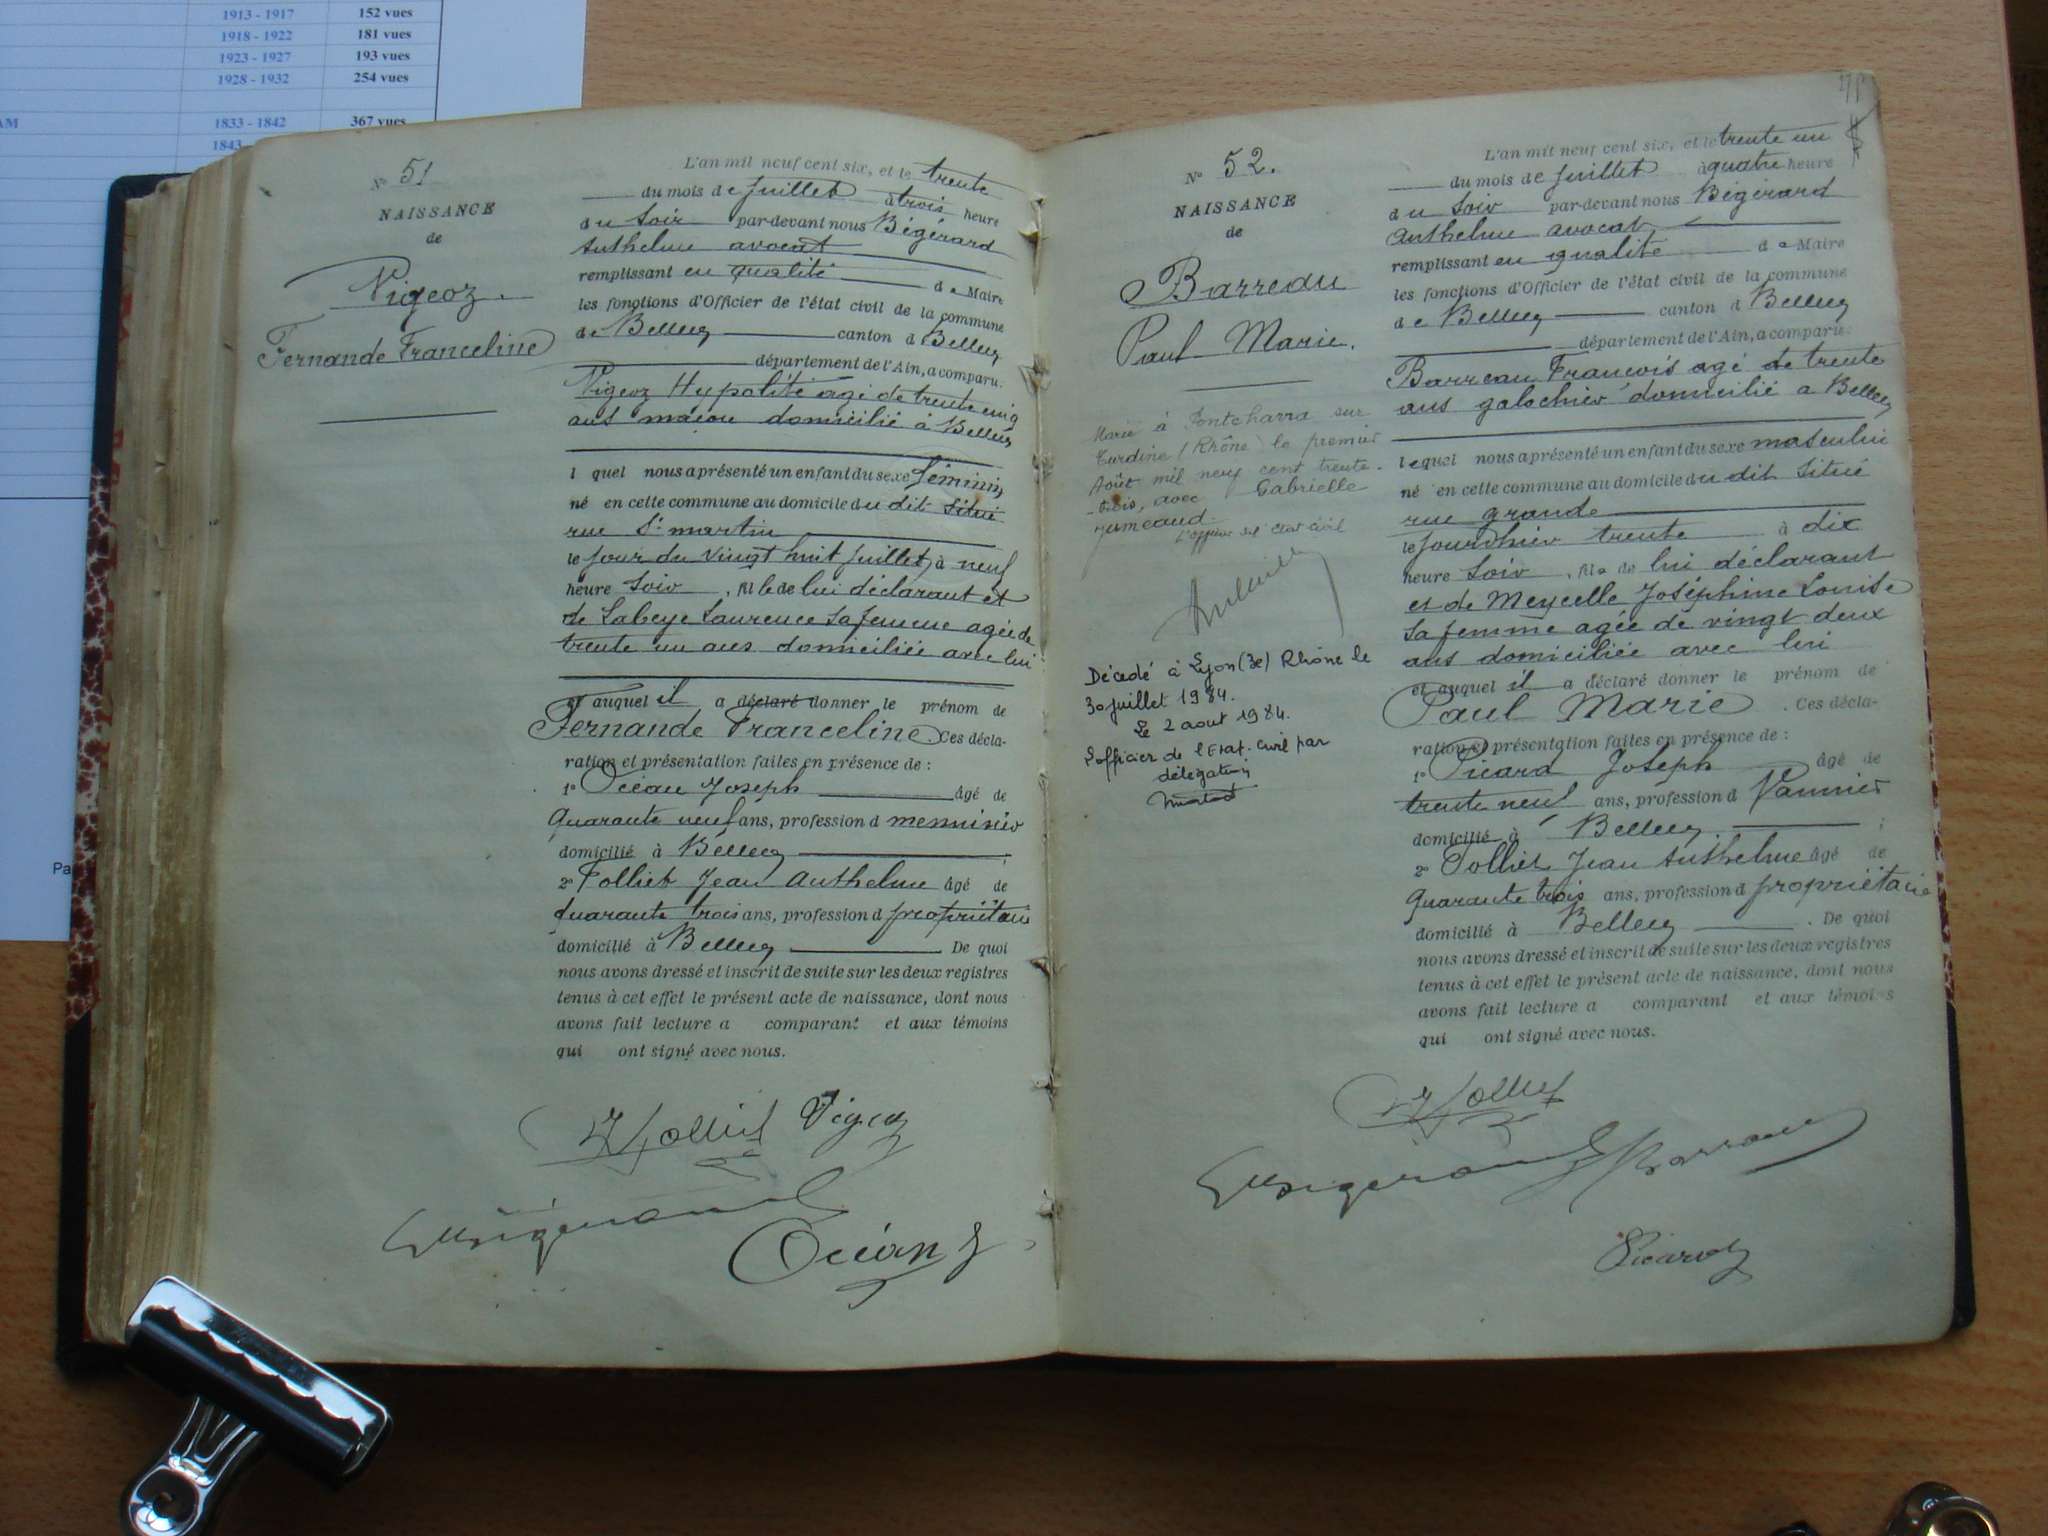 1913 - 1917 152 vues
1918 - 1922 181 vues
1923 - 1927 193 vues
1928 - 1932 254 vues
AM 1833 - 1842 367 vues
1843
Pa
N° 51
NAISSANCE
de
Vigeoz
Fernande Franceline
L'an mil neuf cent six, et le trente
du mois de Juillet à trois heure
du Soir par-devant nous Bégérard
Anthelme avocat
remplissant en qualité de Maire
les fonctions d'Officier de l'état civil de la commune
de Belley canton d Belley
département de l'Ain, a comparu:
Vigeoz Hypolite agé de trente cinq
ans maçon domicilié à Belley
l quel nous a présenté un enfant du sexe féminin
né en cette commune au domicile du dit Situé
rue St martin
le jour du vingt huit Juillet, à neuf
heure Soir, fille de lui déclarant et
de Labeye Laurence Sa femme agée de
trente un ans domiciliée avec lui
et auquel il a déclaré donner le prénom de
Fernande Franceline. Ces décla-
ration et présentation faites en présence de :
1° Océan Joseph âgé de
Quarante neuf ans, profession d menuisier
domicilié à Belley
2° Folliet Jean Anthelme âgé de
Quarante trois ans, profession d propriétaire
domicilié à Belley De quoi
nous avons dressé et inscrit de suite sur les deux registres
tenus à cet effet le présent acte de naissance, dont nous
avons fait lecture a comparant et aux témoins
qui ont signé avec nous.
Folliet Vigeoz
Bégérard
Océan J
N° 52.
NAISSANCE
de
Barreau
Paul Marie.
Marié à Pontcharra sur
Turdine (Rhône) le premier
Août mil neuf cent trente-
-trois, avec Gabrielle
Jumeaud.
L'officier de l'état civil
Décédé à Lyon (3e) Rhône le
30 juillet 1984.
Le 2 aout 1984.
L'officier de l'Etat-Civil par
délégation
L'an mil neuf cent six, et le trente un
du mois de Juillet à quatre heure
du Soir par-devant nous Bégérard
Anthelme avocat
remplissant en qualité de Maire
les fonctions d'Officier de l'état civil de la commune
de Belley canton d Belley
département de l'Ain, a comparu:
Barreau François agé de trente
ans galochier domicilié à Belley
lequel nous a présenté un enfant du sexe masculin
né en cette commune au domicile du dit Situé
rue grande
le jour d'hier trente à dix
heure Soir, fils de lui déclarant
et de Meycelle Joséphine Louise
Sa femme agée de vingt deux
ans domiciliée avec lui
et auquel il a déclaré donner le prénom de
Paul Marie. Ces décla-
ration et présentation faites en présence de :
1° Picard Joseph âgé de
trente neuf ans, profession d Vannier
domicilié à Belley ;
2° Folliet Jean Anthelme âgé de
Quarante trois ans, profession d propriétaire
domicilié à Belley. De quoi
nous avons dressé et inscrit de suite sur les deux registres
tenus à cet effet le présent acte de naissance, dont nous
avons fait lecture a comparant et aux témoins
qui ont signé avec nous.
Folliet
Bégérard Barreau
Picard